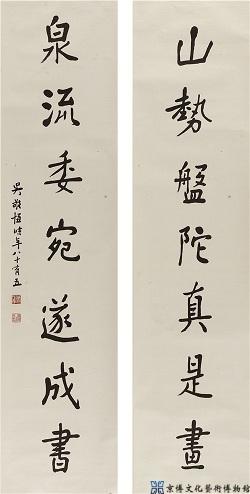 山勢盤陀真是畫
泉流委宛遂成書
吳敬恆時年八十有五
京博文化藝術博物館